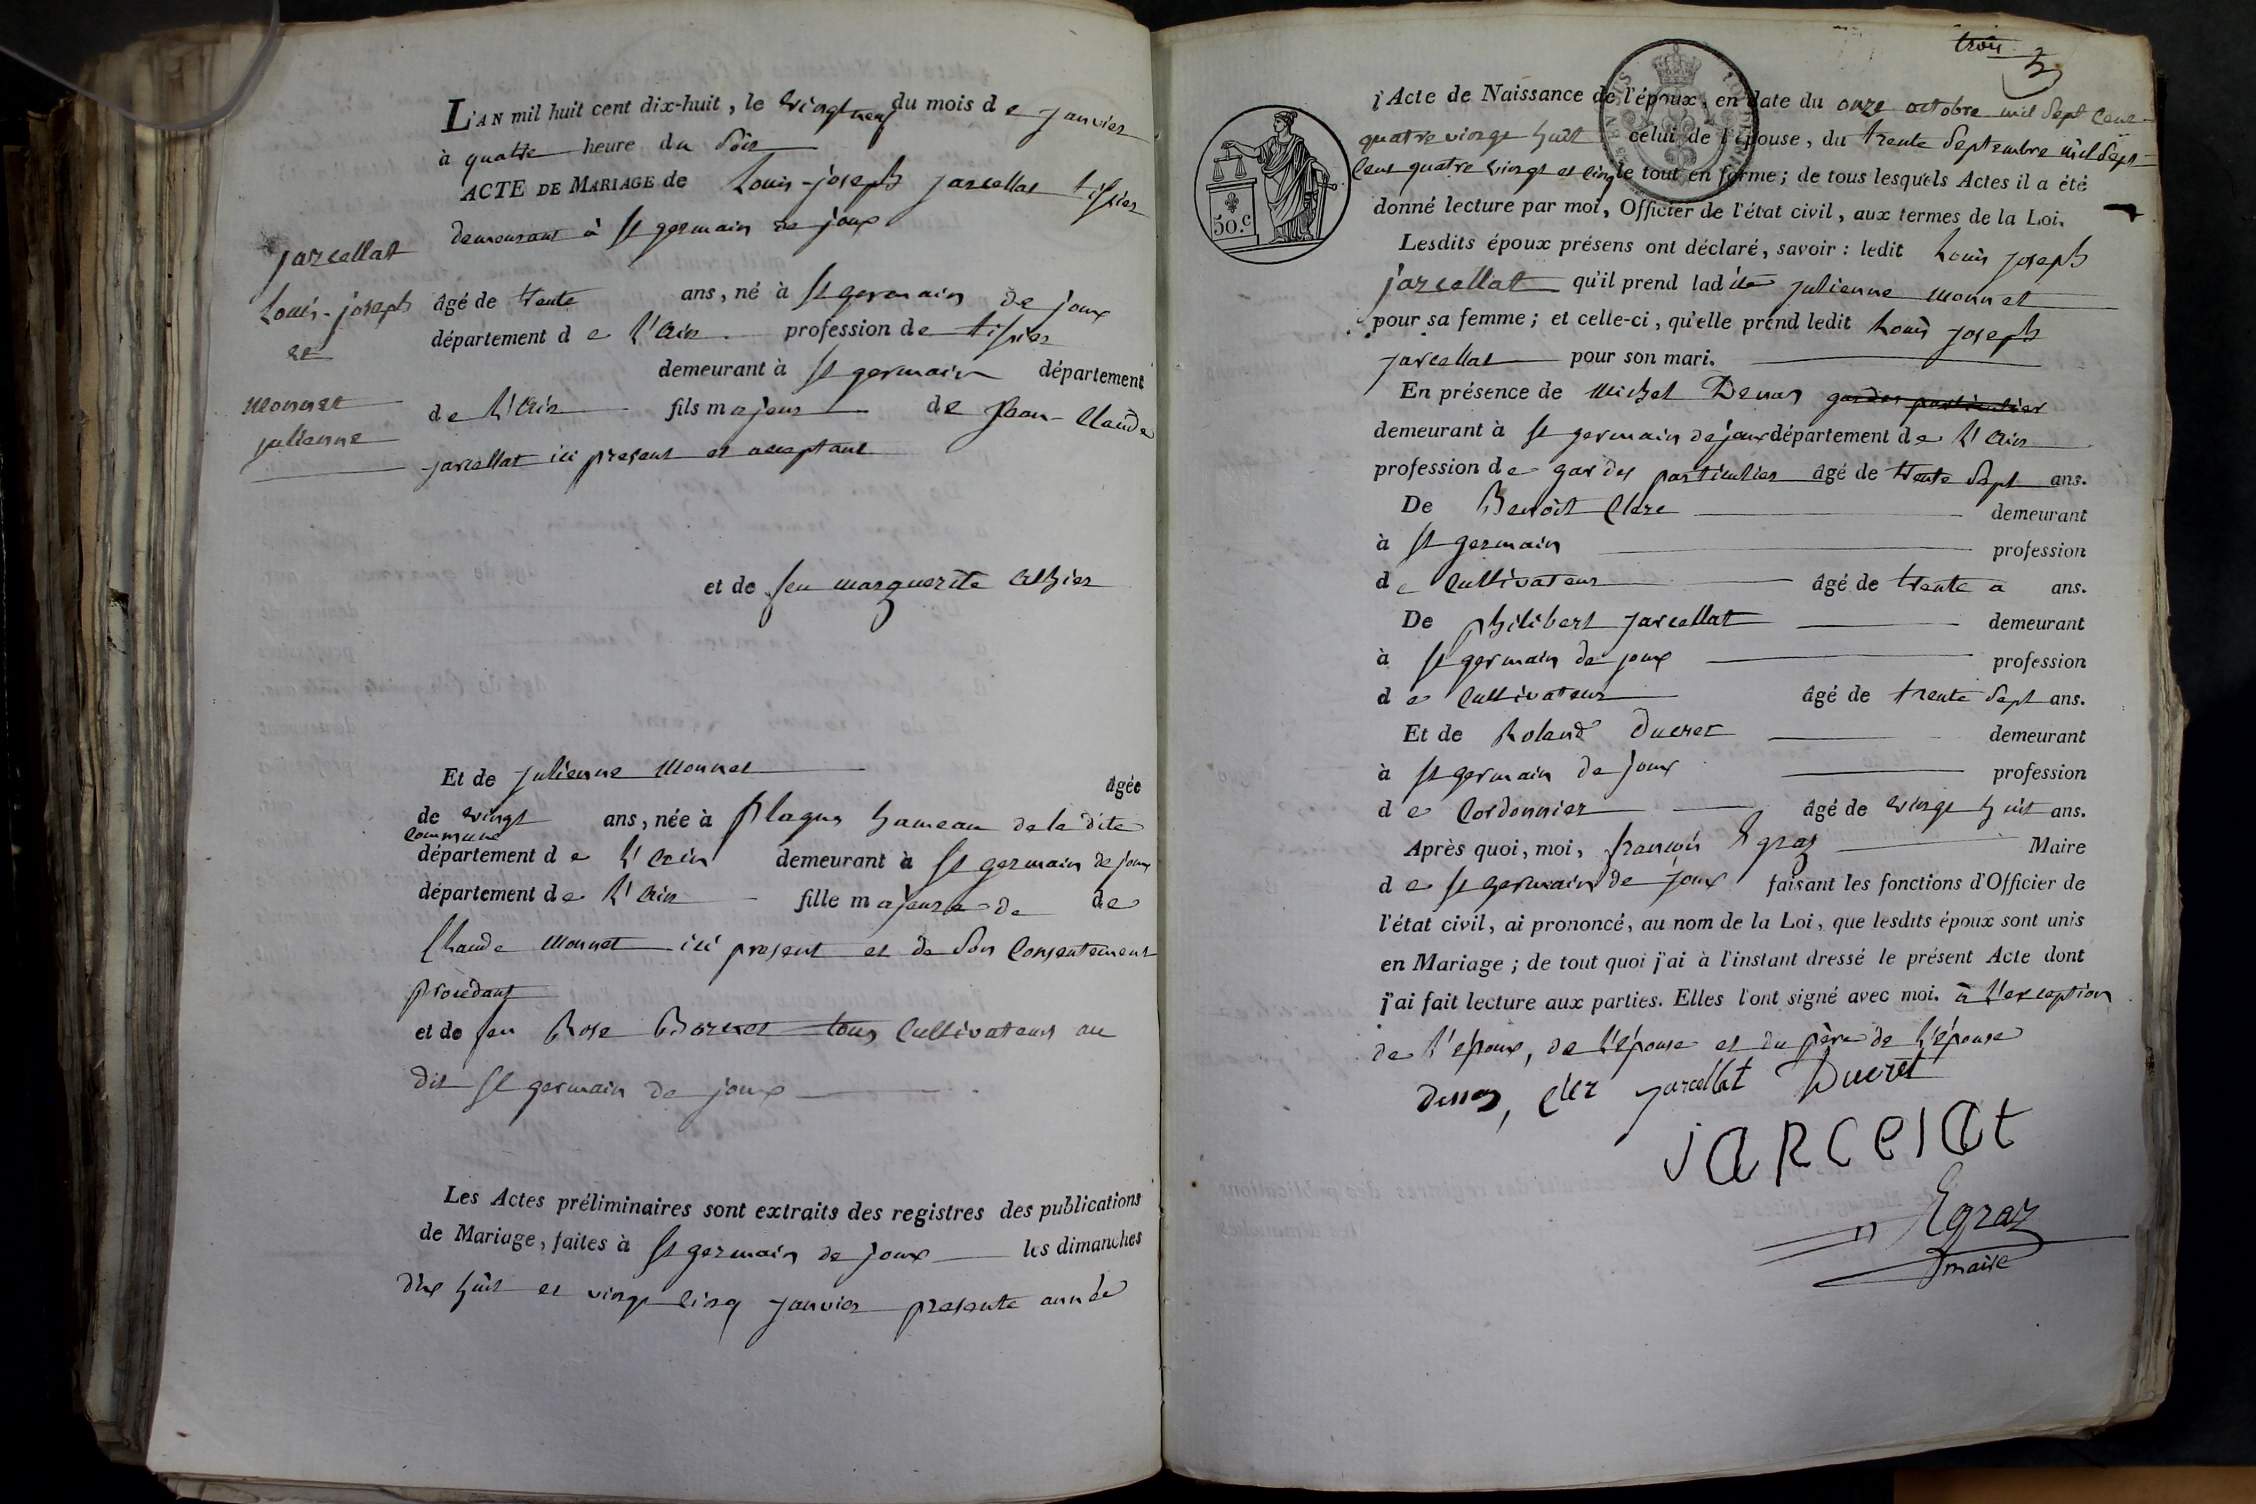 L'AN mil huit cent dix-huit, le vingt neuf du mois de janvier
à quatre heure du soir
ACTE DE MARIAGE de Louis-joseph jarcellat tissier
demeurant à St germain de joux
jarcellat
Louis-joseph
et
monnet
julienne
âgé de trente ans, né à St germain de joux
département de L'ain profession de tissier
demeurant à St germain département
de L'ain fils majeur de Jean-Claude
jarcellat ici present et acceptant
et de feu marguerite
Et de julienne monnet âgée
de vingt ans, née à plagns hameau de la dite
commune
département de L'ain demeurant à St germain de joux
département de L'ain fille majeure de de
Claude monnet ici present et de son consentement
procedant
et de feu Rose tous cultivateurs au
dit St germain de joux
Les Actes préliminaires sont extraits des registres des publications
de Mariage, faites à St germain de joux les dimanches
dix huit et vingt cinq janvier presente année
trois
3
50.C
l'Acte de Naissance de l'époux, en date du onze octobre mil sept cent
quatre vingt huit celui de l'épouse, du trente septembre mil sept
cent quatre vingt et cinq le tout en forme; de tous lesquels Actes il a été
donné lecture par moi, Officier de l'état civil, aux termes de la Loi.
Lesdits époux présens ont déclaré, savoir : ledit Louis joseph
jarcellat qu'il prend ladite julienne monnet
pour sa femme; et celle-ci, qu'elle prend ledit Louis joseph
jarcellat pour son mari.
En présence de michel gardes particulier
demeurant à St germain de joux département de L'ain
profession de gardes particulier âgé de trente sept ans.
De Benoit Clerc demeurant
à St germain profession
de cultivateur âgé de trente a ans.
De philibert jarcellat demeurant
à St germain de joux profession
de cultivateur âgé de trente sept ans.
Et de Roland Ducret demeurant
à St germain de joux profession
de Cordonnier âgé de vingt huit ans.
Après quoi, moi, françois Egraz Maire
de St germain de joux faisant les fonctions d'Officier de
l'état civil, ai prononcé, au nom de la Loi, que lesdits époux sont unis
en Mariage; de tout quoi j'ai à l'instant dressé le présent Acte dont
j'ai fait lecture aux parties. Elles l'ont signé avec moi. à L'exception
de L'époux, de L'épouse et du père de L'épouse
jarcellat Ducret
jARCelAt
Egraz
maire